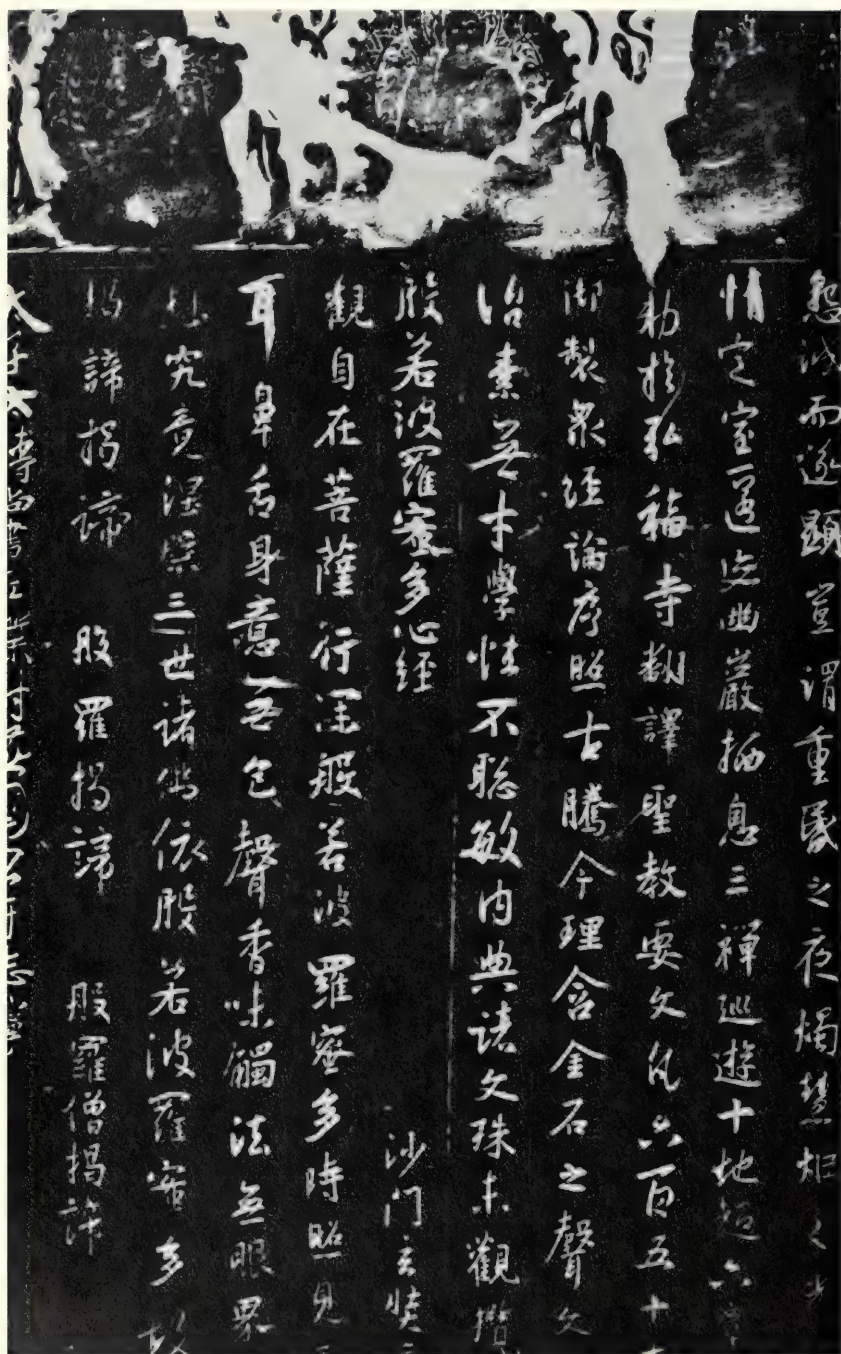 懇誠而遂顯豈謂重昬之夜燭慧炬之
情定室匿迹幽巖栖息三禪巡遊十地超六
勑於弘福寺翻譯聖教要文凡六百五十
御製衆經論序照古騰今理含金石之聲文
治素無才學性不聡敏内典諸文殊未觀攬
般若波羅蜜多心經
沙門玄奘
觀自在菩薩行深般若波羅蜜多時照見
耳鼻舌身意無色聲香味觸法無眼界
究竟涅槃三世諸佛依般若波羅蜜多故
揭諦揭諦 般羅揭諦 般羅僧揭諦
太子太傅尚書左